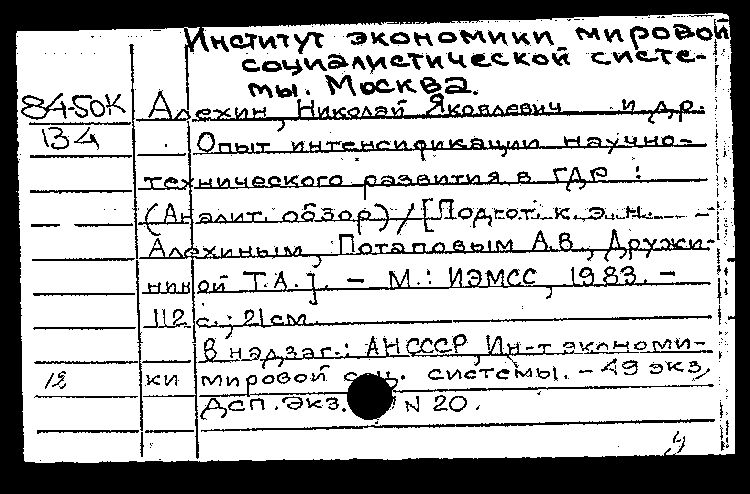 Институт экономики мировой
социалистической систе-
мы. Москва.
84-50К Алехин, Николай Яковлевич и др.
134 Опыт интенсификации научно-
технического развития в ГДР :
(Аналит. обзор) / [Подгот. к. э. н.
Алехиным, Потаповым А.В., Дружи-
ниной Т.А.]. – М.: ИЭМСС, 1983. –
112 с.; 21 см.
В надзаг.: АН СССР, Ин-т экономи-
12 ки мировой соц. системы. – 49 экз,
Дсп. Экз. N 20.